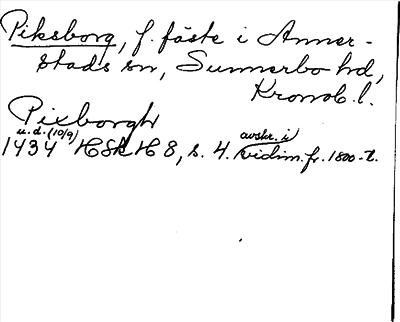 Piksborg, f. fäste i Anner-
stads sn, Sunnerbo hd,
Kronob. l.
Pixborgh
u.d. (10/9) avskr. i
1434 HSH H 8, s. 4. vidim. fr. 1800-t.